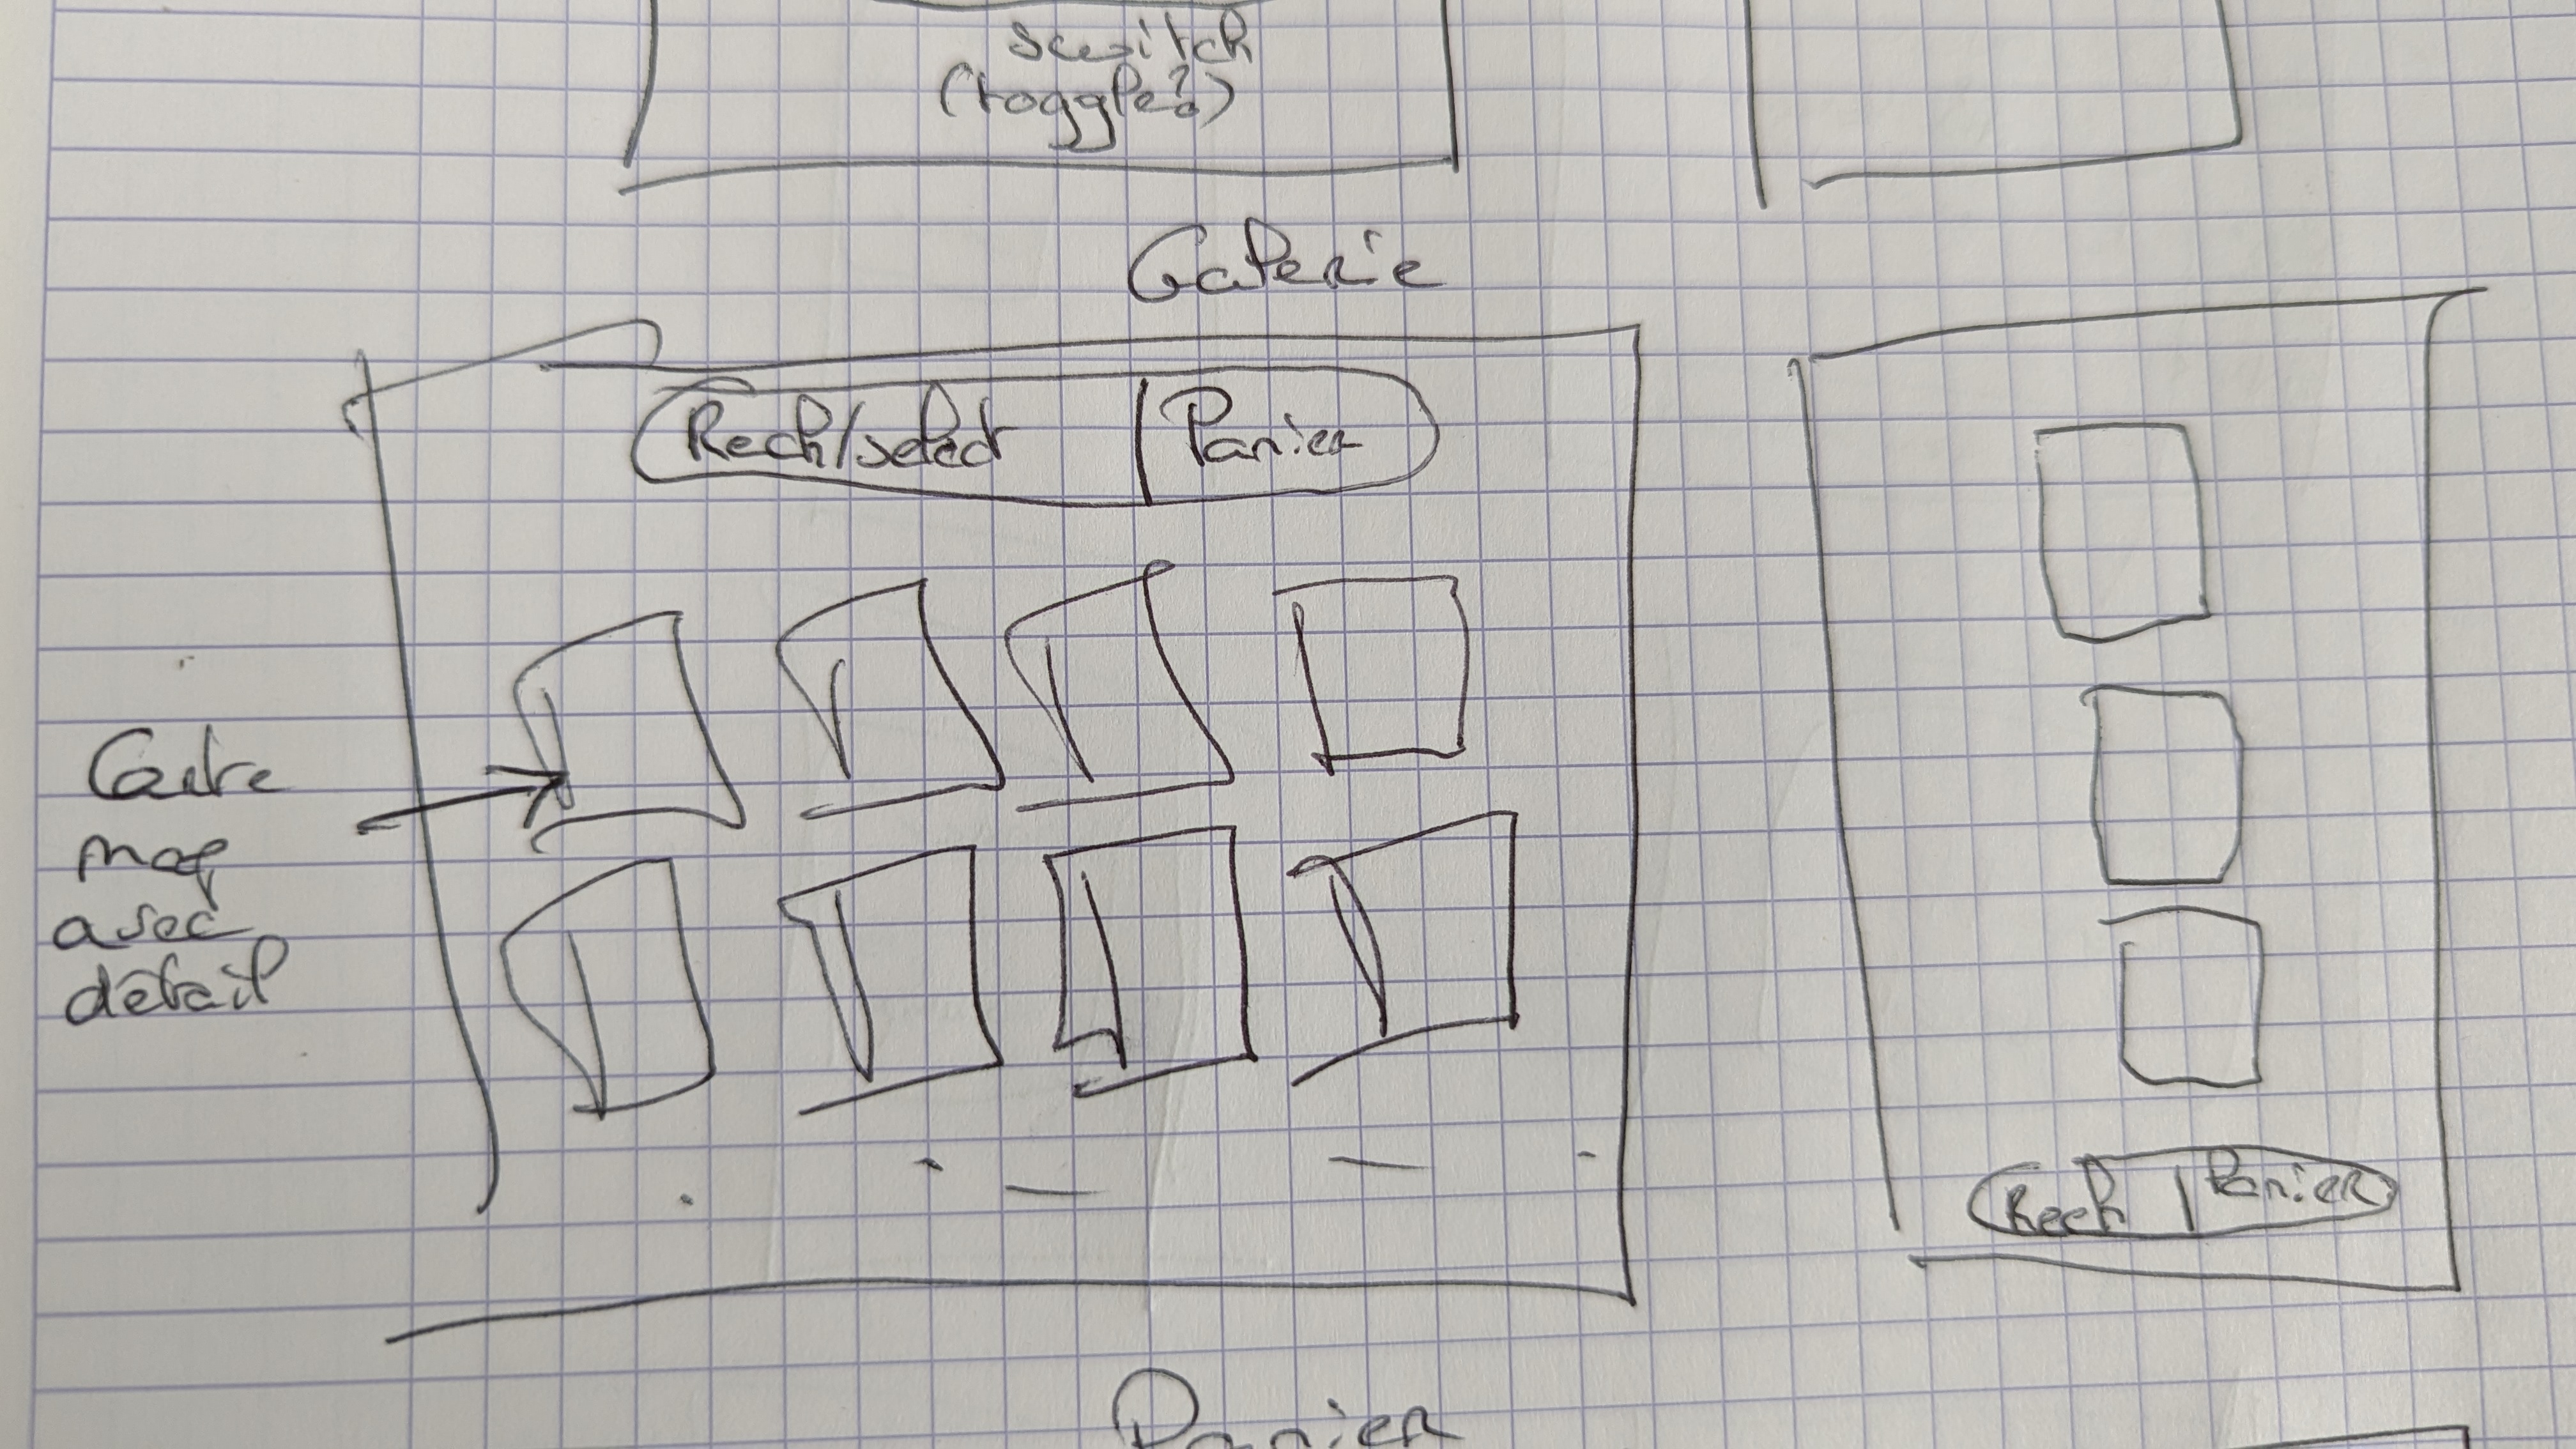 switch
(toggle?)
Galerie
Rech/select | Panier
Carte
map
avec
détail
Rech | Panier
Panier